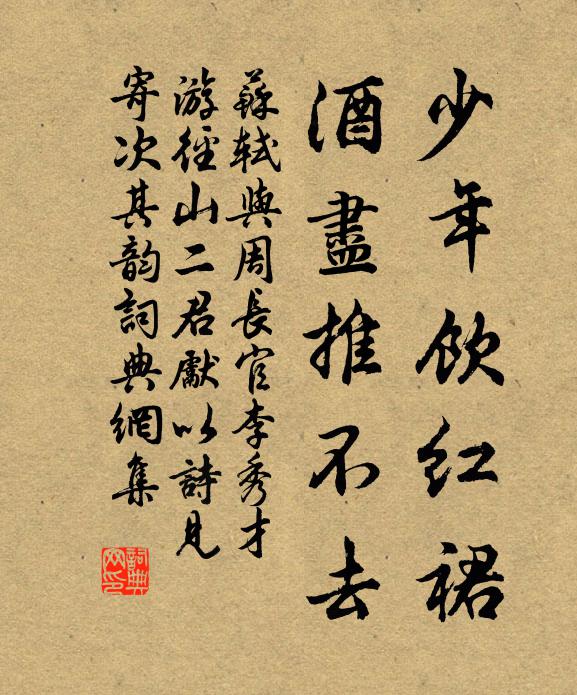 少年饮红裙
酒盡推不去
蘇軾與周長官李秀才
游徑山二君獻以詩見
寄次其韵詞典網集
詞典网印